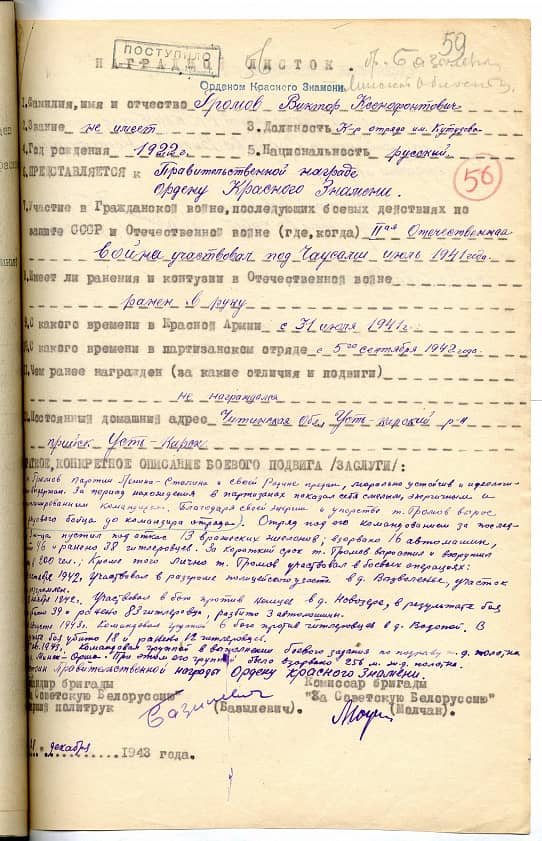 59
ПОСТУПИЛО
НАГРАДНОЙ ЛИСТОК.
Орденом Красного Знамени
1.Фамилия,имя и отчество Громов Виктор Ксенофонтович
2.Звание не имеет 3.Должность К-р отряда им. Кутузова
4.Год рождения 1922 г 5.Национальность русский
56
6.ПРЕДСТАВЛЯЕТСЯ к Правительственной награде
Ордену Красного Знамени.
7.Участие в Гражданской войне,последующих боевых действиях по
защите СССР и Отечественной войне (где,когда) IIая Отечественная
война участвовал под Чаусами июль 1941 года.
8.Имеет ли ранения и контузии в Отечественной войне
ранен в руку
9.С какого времени в Красной Армии с 31 июля 1941 г.
10.С какого времени в партизанском отряде с 5го сентября 1942 года.
11.Чем ранее награжден (за какие отличия и подвиги)
не награждался
12.Постоянный домашний адрес Читинская Обл Усть-Карский р-н
прииск Усть-Карск
КРАТКОЕ,КОНКРЕТНОЕ ОПИСАНИЕ БОЕВОГО ПОДВИГА /ЗАСЛУГИ/:
Громов партии Ленина-Сталина и своей Родине предан, морально устойчив и идеологи-
выдержан. За период нахождения в партизанах показал себя смелым, энергичным и
командиром. Благодаря своей энергии и упорству т. Громов вырос
бойца до командира отряда). Отряд под его командованием за послед-
пустил под откос 13 вражеских эшелонов; взорвано 16 автомашин,
96 и ранено 38 гитлеровцев. За короткий срок т. Громов вырастил и вооружил
200 чел.; Кроме того лично т. Громов участвовал в боевых операциях:
1942, Участвовал в разгроме полицейского участка в д. участок
1942г. Участвовал в бою против немцев в д. Новоозера, в результате боя
убито 39 и ранено 83 гитлеровца, разбито 3 автомашины.
1943г. Командовал группой в бою против гитлеровцев в д. Водопой. В
боя убито 18 и ранено 12 гитлеровцев.
1943г. Командовал группой в выполнении боевого задания по подрыву ж.д. полотна
При этом его группой было взорвано 256 м. ж.д. полотна.
Правительственной награды Ордену Красного Знамени.
Командир бригады Комиссар бригады
"За Советскую Белоруссию" "За Советскую Белоруссию"
политрук (Базылевич). (Молчан).
декабря 1943 года.